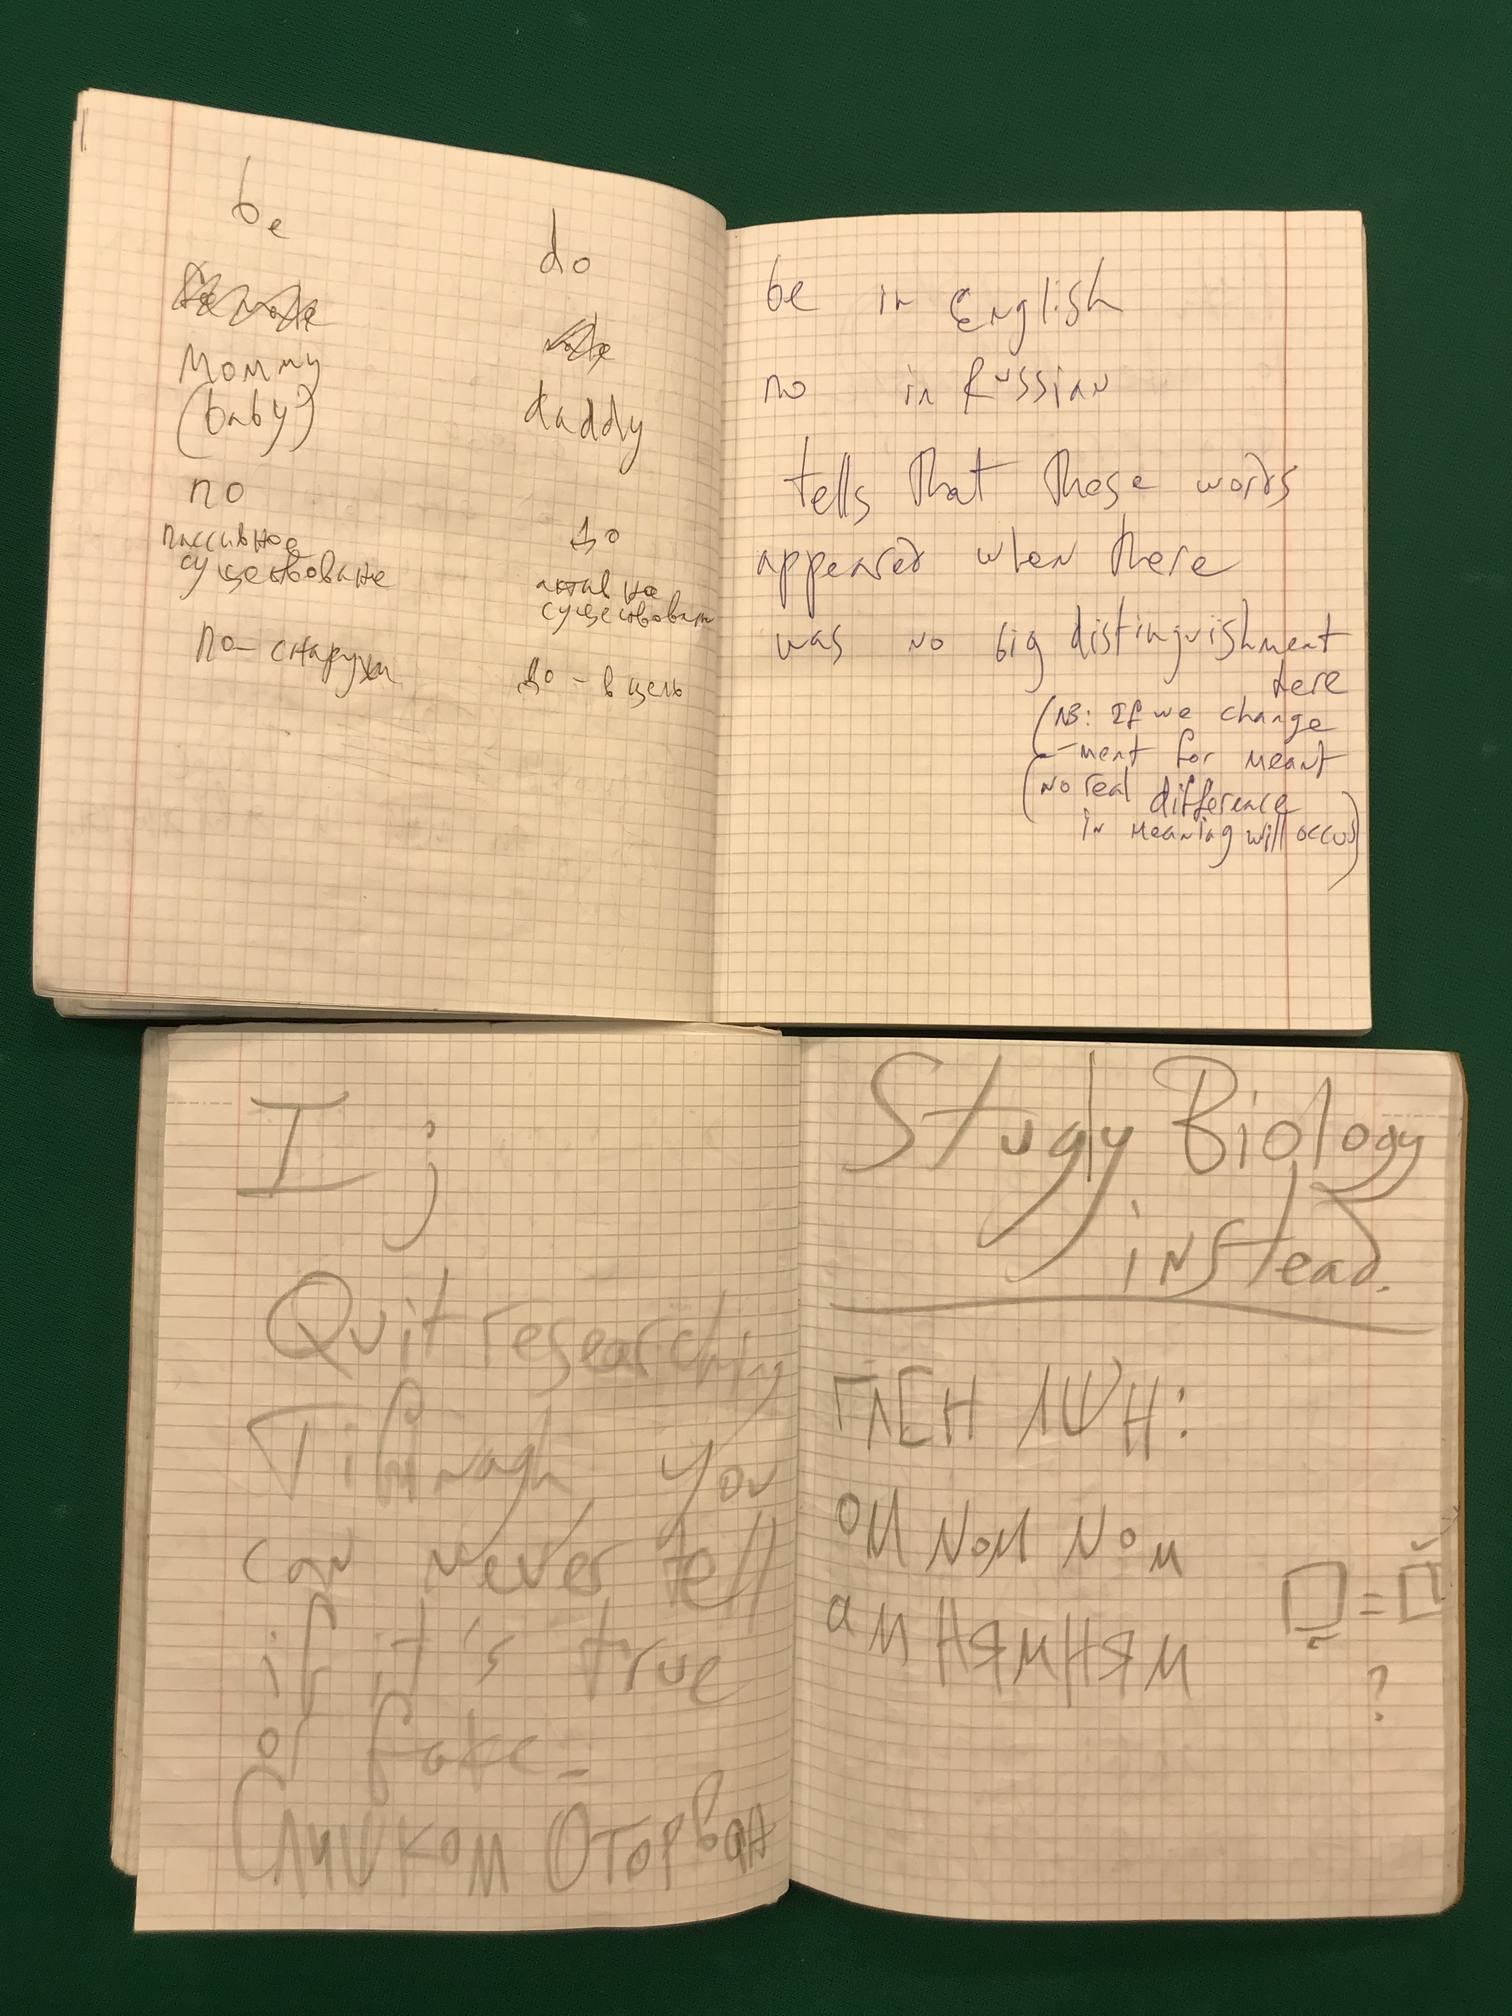 be do
Mommy
(baby?) daddy
по
пассивное До
существование активное
существовани
по - снаружи До - в цель
be in English
по in Russian
tells that these words
appeared when there
was no big distinguishment
here
(NB: If we change
-ment for meant
(no real difference
in meaning will occur)
I j
Quit researching
Tifinagh you
can never tell
if it's true
or fake -
Слишком Оторван
Study Biology
instead.
ОМ NOM NOM
ам НЯМНЯМ
=
?